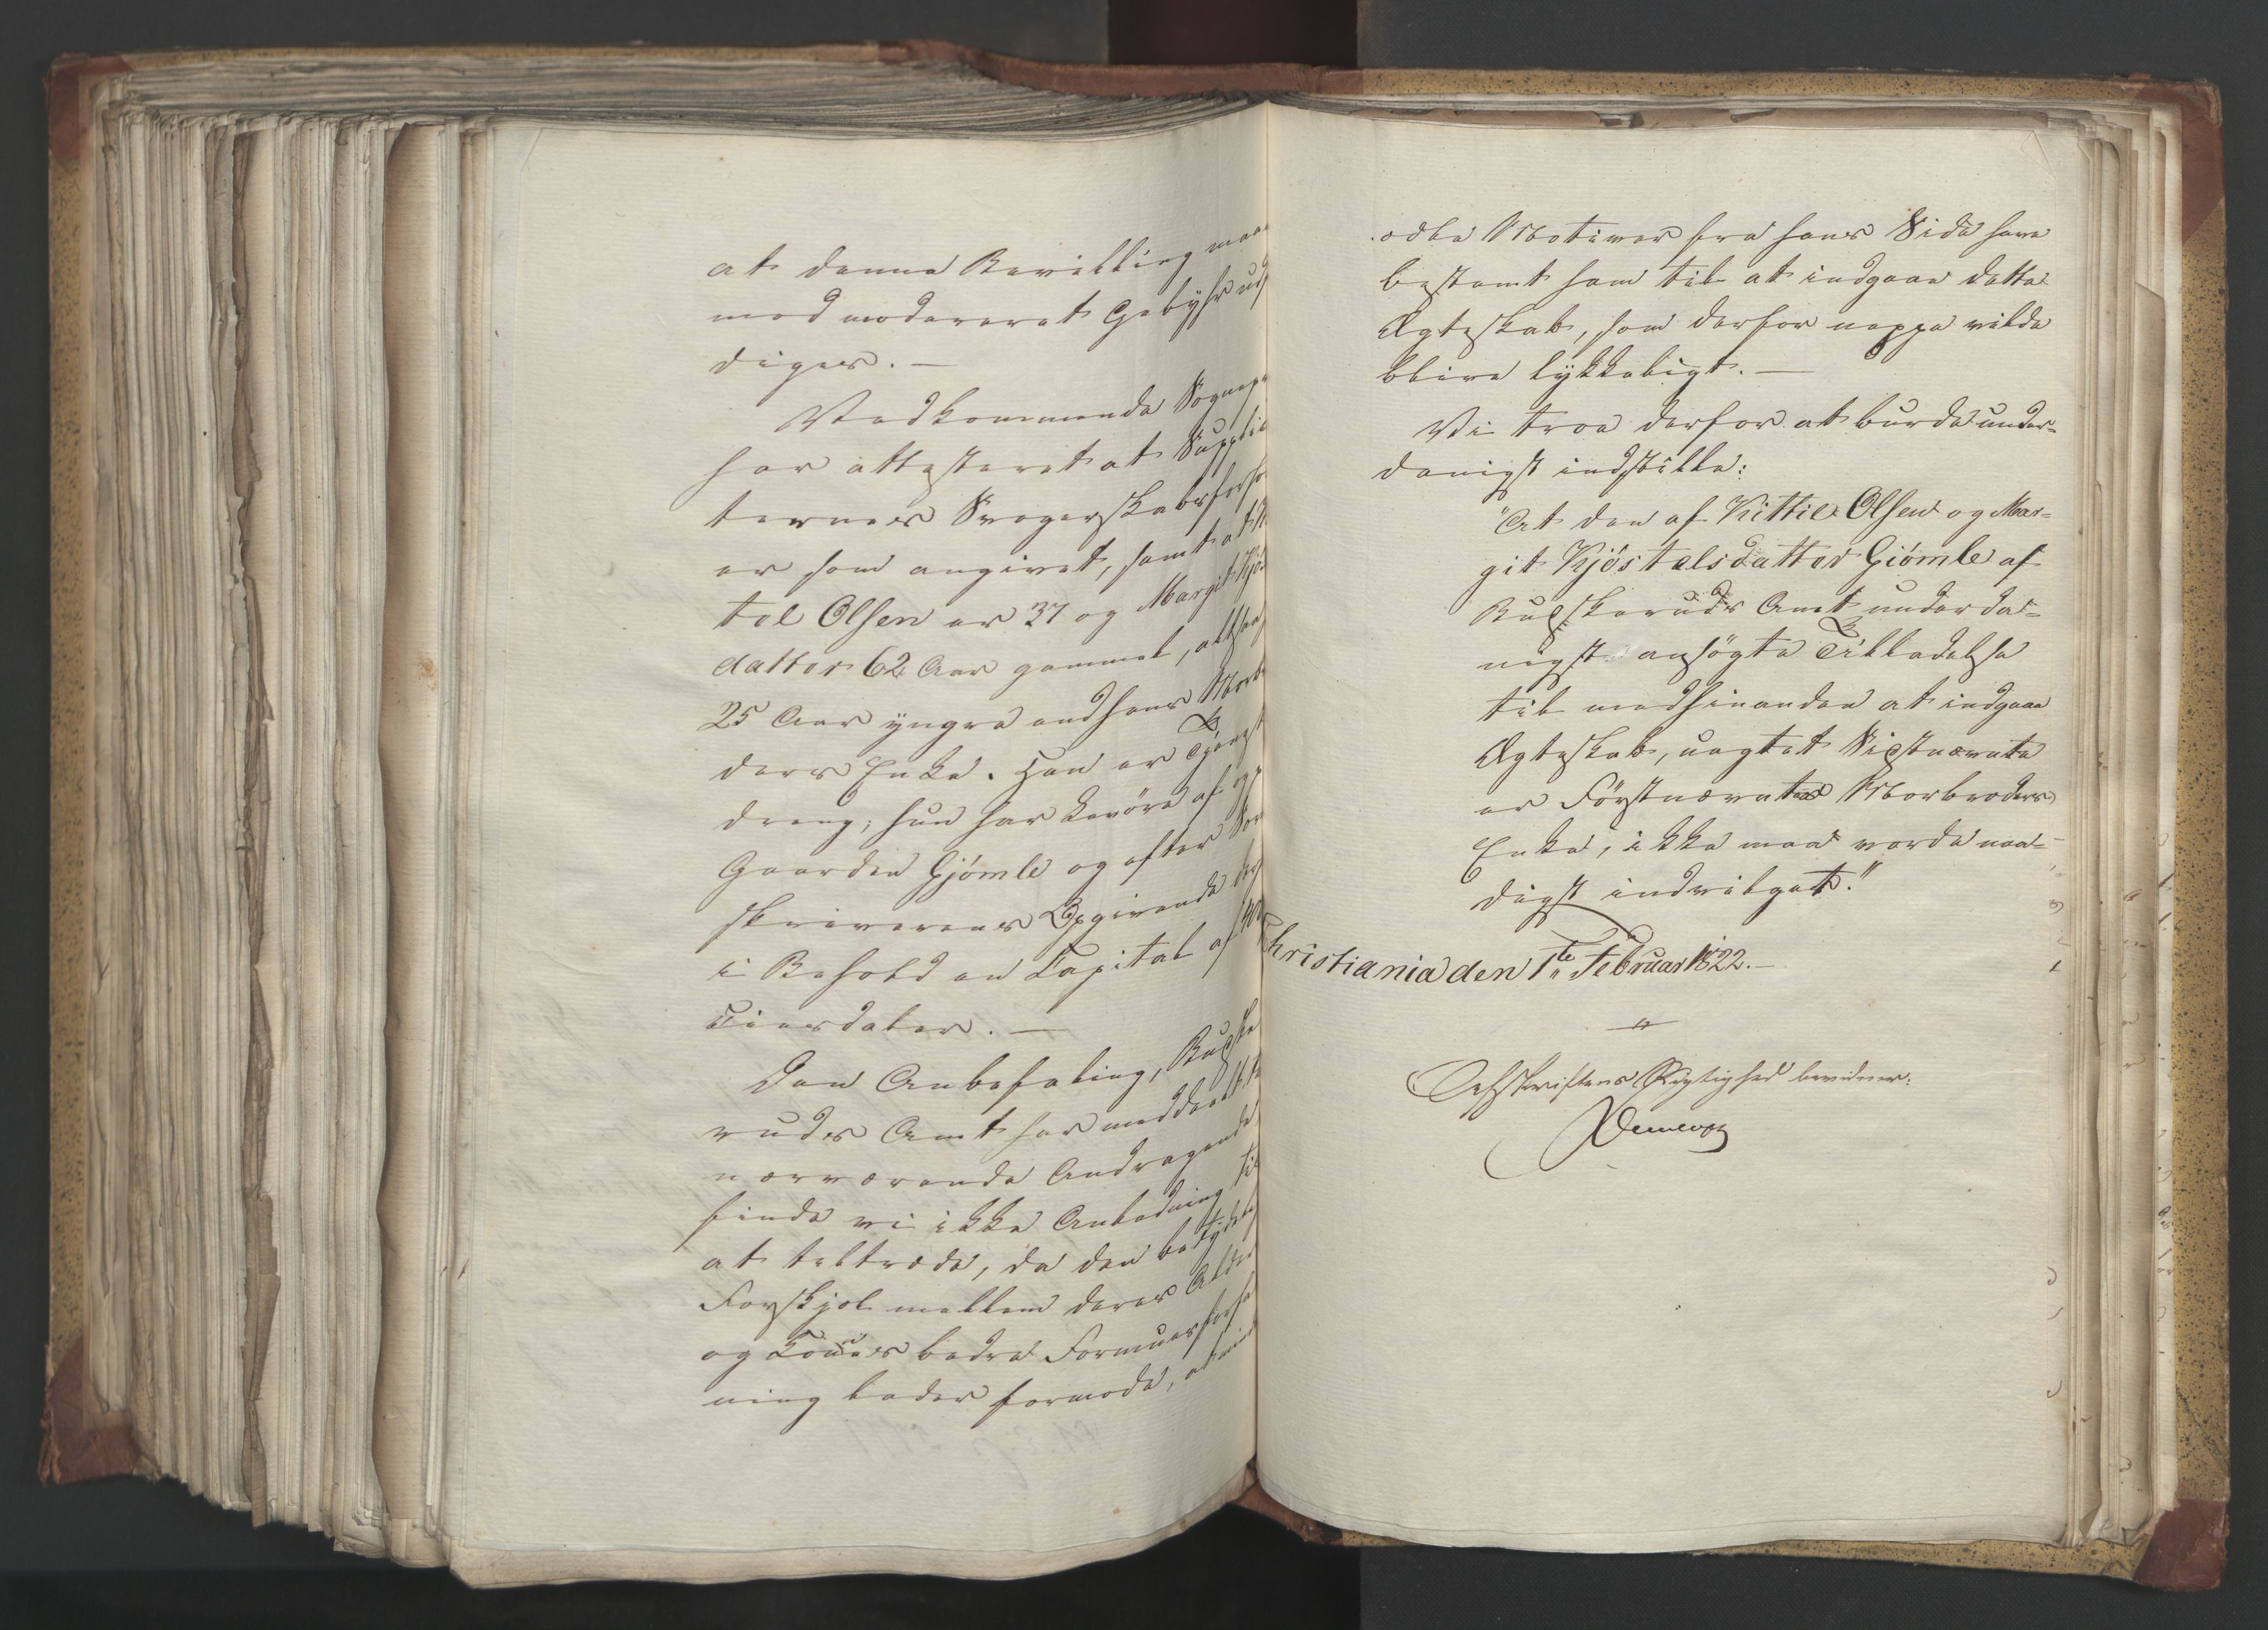 at denne Bevilling maa
med modereret Gebyhr ud
diges. —
Vedkommende Sognep
har attesteret at Supplic
ternes Svogerskabsforho
er som angivet, samt at K
til Olsen er 37 og Margit Kjös
datter 62 Aar gammel, altsaa
25 Aar yngre end hans Morb
ders Enke. Han er Tjenest
dreng; hun har Levöre af
Gaarden Gjömle og efter Sor
skriverens Opgivende
i Behold en Capital af 400
Species­daler. —
Den Anbefaling, Buske
ruds Amt har meddeelt
nærværende Andragende
finde vi ikke Anledning til
at tiltræde, da den betydel
Forskjel mellem deres Alder
og Konens bedre Formuesforfa
ning lader formode, at mind
ædle Motiver fra hans Side have
bestemt ham til at indgaae dette
Ægteskab, som derfor neppe vilde
blive lykkeligt. —
Vi troe derfor at burde under-
danigst indstille:
"At den af Kittil Olsen og Mar-
git Kjöstelsdatter Giömle af
Buskeruds Amt underda-
nigst ansögte Tilladelse
til med hinanden at indgaae
Ægteskab, uagtet Sidstnævnte
er Förstnævntes Morbroders
Enke, ikke maa vorde naa-
digst indvilget."
Christiania den 1te Februar 1822. —
Afskriftens Rigtighed bevidner: